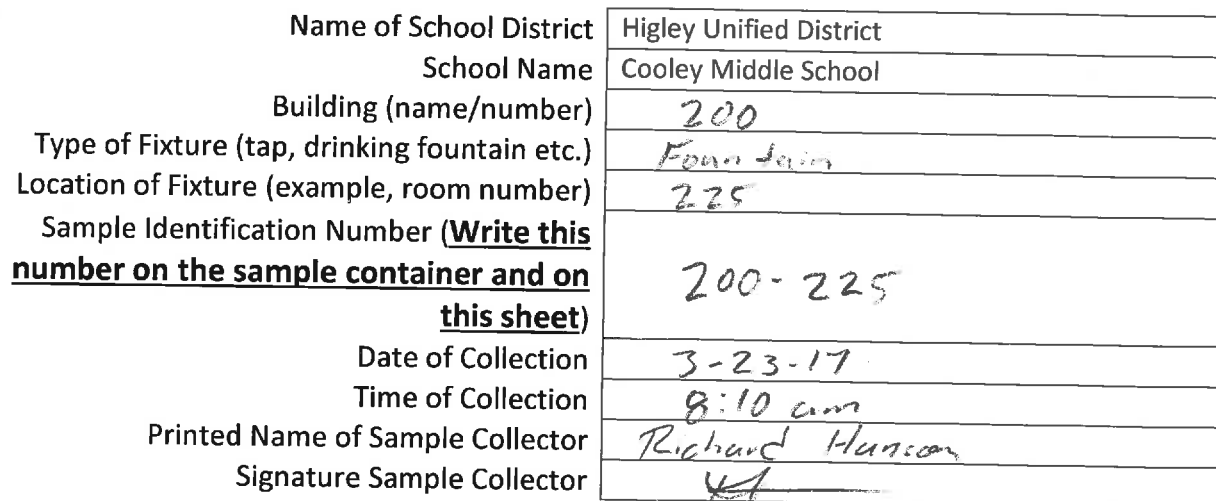 Name of School District Higley Unified District
School Name Cooley Middle School
Building (name/number) 200
Type of Fixture (tap, drinking fountain etc.) Fountain
Location of Fixture (example, room number) 225
Sample Identification Number (Write this
number on the sample container and on 200-225
this sheet)
Date of Collection 3-23-17
Time of Collection 8:10 am
Printed Name of Sample Collector Richard Hanson
Signature Sample Collector